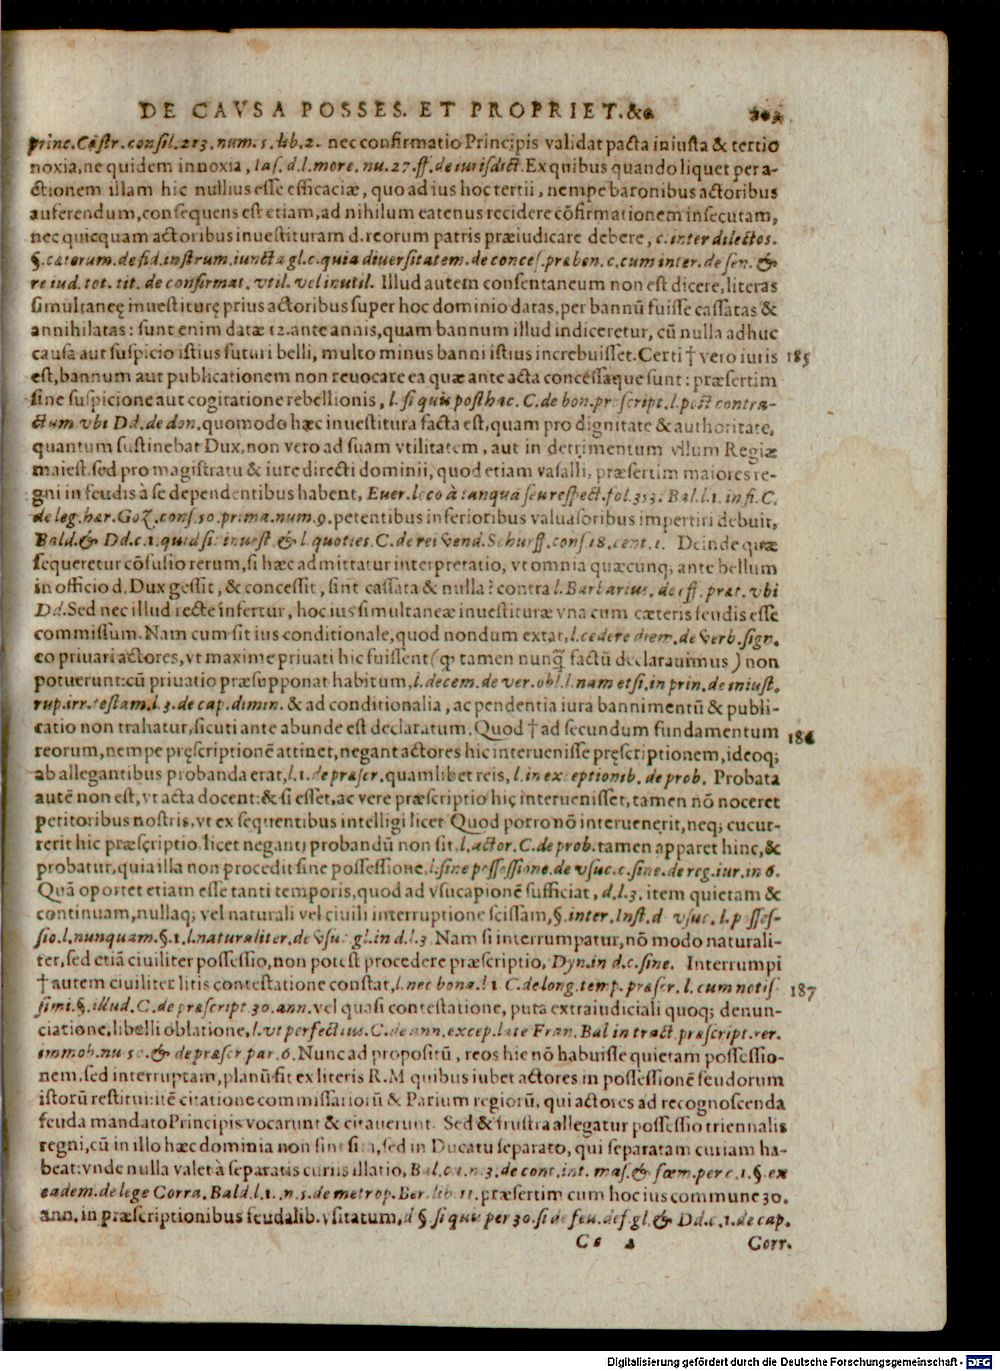 DE CAVSA POSSES. ET PROPRIET. &c
princ. Castr. consil. 213. num. 5. lib. 2. nec confirmatio Principis validat pacta iniusta & tertio
noxia, ne quidem innoxia, Ias. d. l. more. nu. 27. ff. de iurisdict. Ex quibus quando liquet per a-
ctionem illam hic nullius esse efficaciæ, quo ad ius hoc tertii, nempe baronibus actoribus
auferendum, consequens est etiam, ad nihilum eatenus recidere cōfirmationem insecutam,
nec quicquam actoribus inuestituram d. reorum patris præiudicare debere, c. inter dilectos.
§. cæterum. de fid. instrum. iuncta gl. c. quia diuersitatem. de conces. præben. c. cum inter. de sen. &
re iud. tot. tit. de confirmat. vtil. vel inutil. Illud autem consentaneum non est dicere, literas
simultaneę inuestiturę prius actoribus super hoc dominio datas, per bannū fuisse cassatas &
annihilatas: sunt enim datæ 12. ante annis, quam bannum illud indiceretur, cū nulla adhuc
causa aut suspicio istius futuri belli, multo minus banni istius increbuisset. Certi † vero iuris 185
est, bannum aut publicationem non reuocare ea quæ ante acta concessaque sunt: præsertim
sine suspicione aut cogitatione rebellionis, l. si quis posthac. C. de bon. proscript. l. post contra-
ctum vbi Dd. de don. quomodo hæc inuestitura facta est, quam pro dignitate & authoritate,
quantum sustinebat Dux, non vero ad suam vtilitatem, aut in detrimentum vllum Regiæ
maiest. sed pro magistratu & iure directi dominii, quod etiam vasalli, præsertim maiores re-
gni in feudis à se dependentibus habent, Euer. loco à tanquā seu respect. fol. 353. Bal. l. 1. in fi. C.
de leg. hær. Goz. cons. 50. prima. num. 9. petentibus inferioribus valuasoribus impertiri debuit,
Bald. & Dd. c. 1. quid sit inuest. & l. quoties. C. de rei vend. Schurff. cons. 18. cent. 1. Deinde quæ
sequeretur cōfusio rerum, si hæc admittatur interpretatio, vt omnia quæcunq; ante bellum
in officio d. Dux gessit, & concessit, sint cassata & nulla? contra l. Barbarius. de off. præt. vbi
Dd. Sed nec illud recte infertur, hoc ius simultaneæ inuestituræ vna cum cæteris feudis esse
commissum. Nam cum sit ius conditionale, quod nondum extat, l. cedere diem. de verb. sign.
eo priuari actores, vt maxime priuati hic fuissent (qp tamen nunq̄ factū declarauimus) non
potuerunt: cū priuatio præsupponat habitum, l. decem. de ver. obl. l. nam etsi. in prin. de iniust.
rup. irr. testam. l. 3. de cap. dimin. & ad conditionalia, ac pendentia iura bannimentū & publi-
catio non trahatur, sicuti ante abunde est declaratum. Quod † ad secundum fundamentum 186
reorum, nempe pręscriptionē attinet, negant actores hic interuenisse pręscriptionem, ideoq;
ab allegantibus probanda erat, l. 1. de præscr. quamlibet reis, l. in exceptionib. de prob. Probata
autē non est, vt acta docent: & si esset, ac vere præscriptio hic interuenisset, tamen nō noceret
petitoribus nostris, vt ex sequentibus intelligi licet Quod porro nō interuenerit, neq; cucur-
rerit hic præscriptio licet neganti probandū non sit l. actor. C. de prob. tamen apparet hinc, &
probatur, quia illa non procedit sine possessione, l. sine possessione. de vsuc. c. sine. de reg. iur. in 6.
Quā oportet etiam esse tanti temporis, quod ad vsucapionē sufficiat, d. l. 3. item quietam &
continuam, nullaq; vel naturali vel ciuili interruptione scissam, §. inter. Inst. d vsuc. l. posses-
sio. l. nunquam. §. 1. l. naturaliter. de vsu. gl. in d. l. 3 Nam si interrumpatur, nō modo naturali-
ter, sed etiā ciuiliter possessio, non potest procedere præscriptio, Dyn. in d. c. sine. Interrumpi
† autem ciuiliter litis contestatione constat, l. nec bona. l 1 C. de long. temp. præscr. l. cum notis- 187
simi. §. illud. C. de præscript 30. ann. vel quasi contestatione, puta extraiudiciali quoq; denun-
ciatione, libelli oblatione, l. vt perfectius. C. de ann. excep. late Fran. Bal in tract præscript. ver.
immob. nu 50. & de præscr par. 6. Nunc ad propositū, reos hic nō habuisse quietam possessio-
nem, sed interruptam, planū fit ex literis R. M quibus iubet actores in possessionē feudorum
istorū restitui: itē citatione commissariorū & Parium regiorū, qui actores ad recognoscenda
feuda mandato Principis vocarunt & citauerunt. Sed & frustra allegatur possessio triennalis
regni, cū in illo hæc dominia non sint sita, sed in Ducatu separato, qui separatam curiam ha-
beat: vnde nulla valet à separatis curiis illatio, Bal. c. 1. n. 3. de cont. int. mas. & fœm. per c. 1. §. ex
eadem. de lege Corra. Bald. l. 1. n. 5. de metrop. Ber. lib. 11. præsertim cum hoc ius commune 30.
ann. in præscriptionibus feudalib. vsitatum, d § si quis per 30. si de feu. def. gl. & Dd. c. 1. de cap.
Corr.
Digitalisierung gefördert durch die Deutsche Forschungsgemeinschaft - DFG